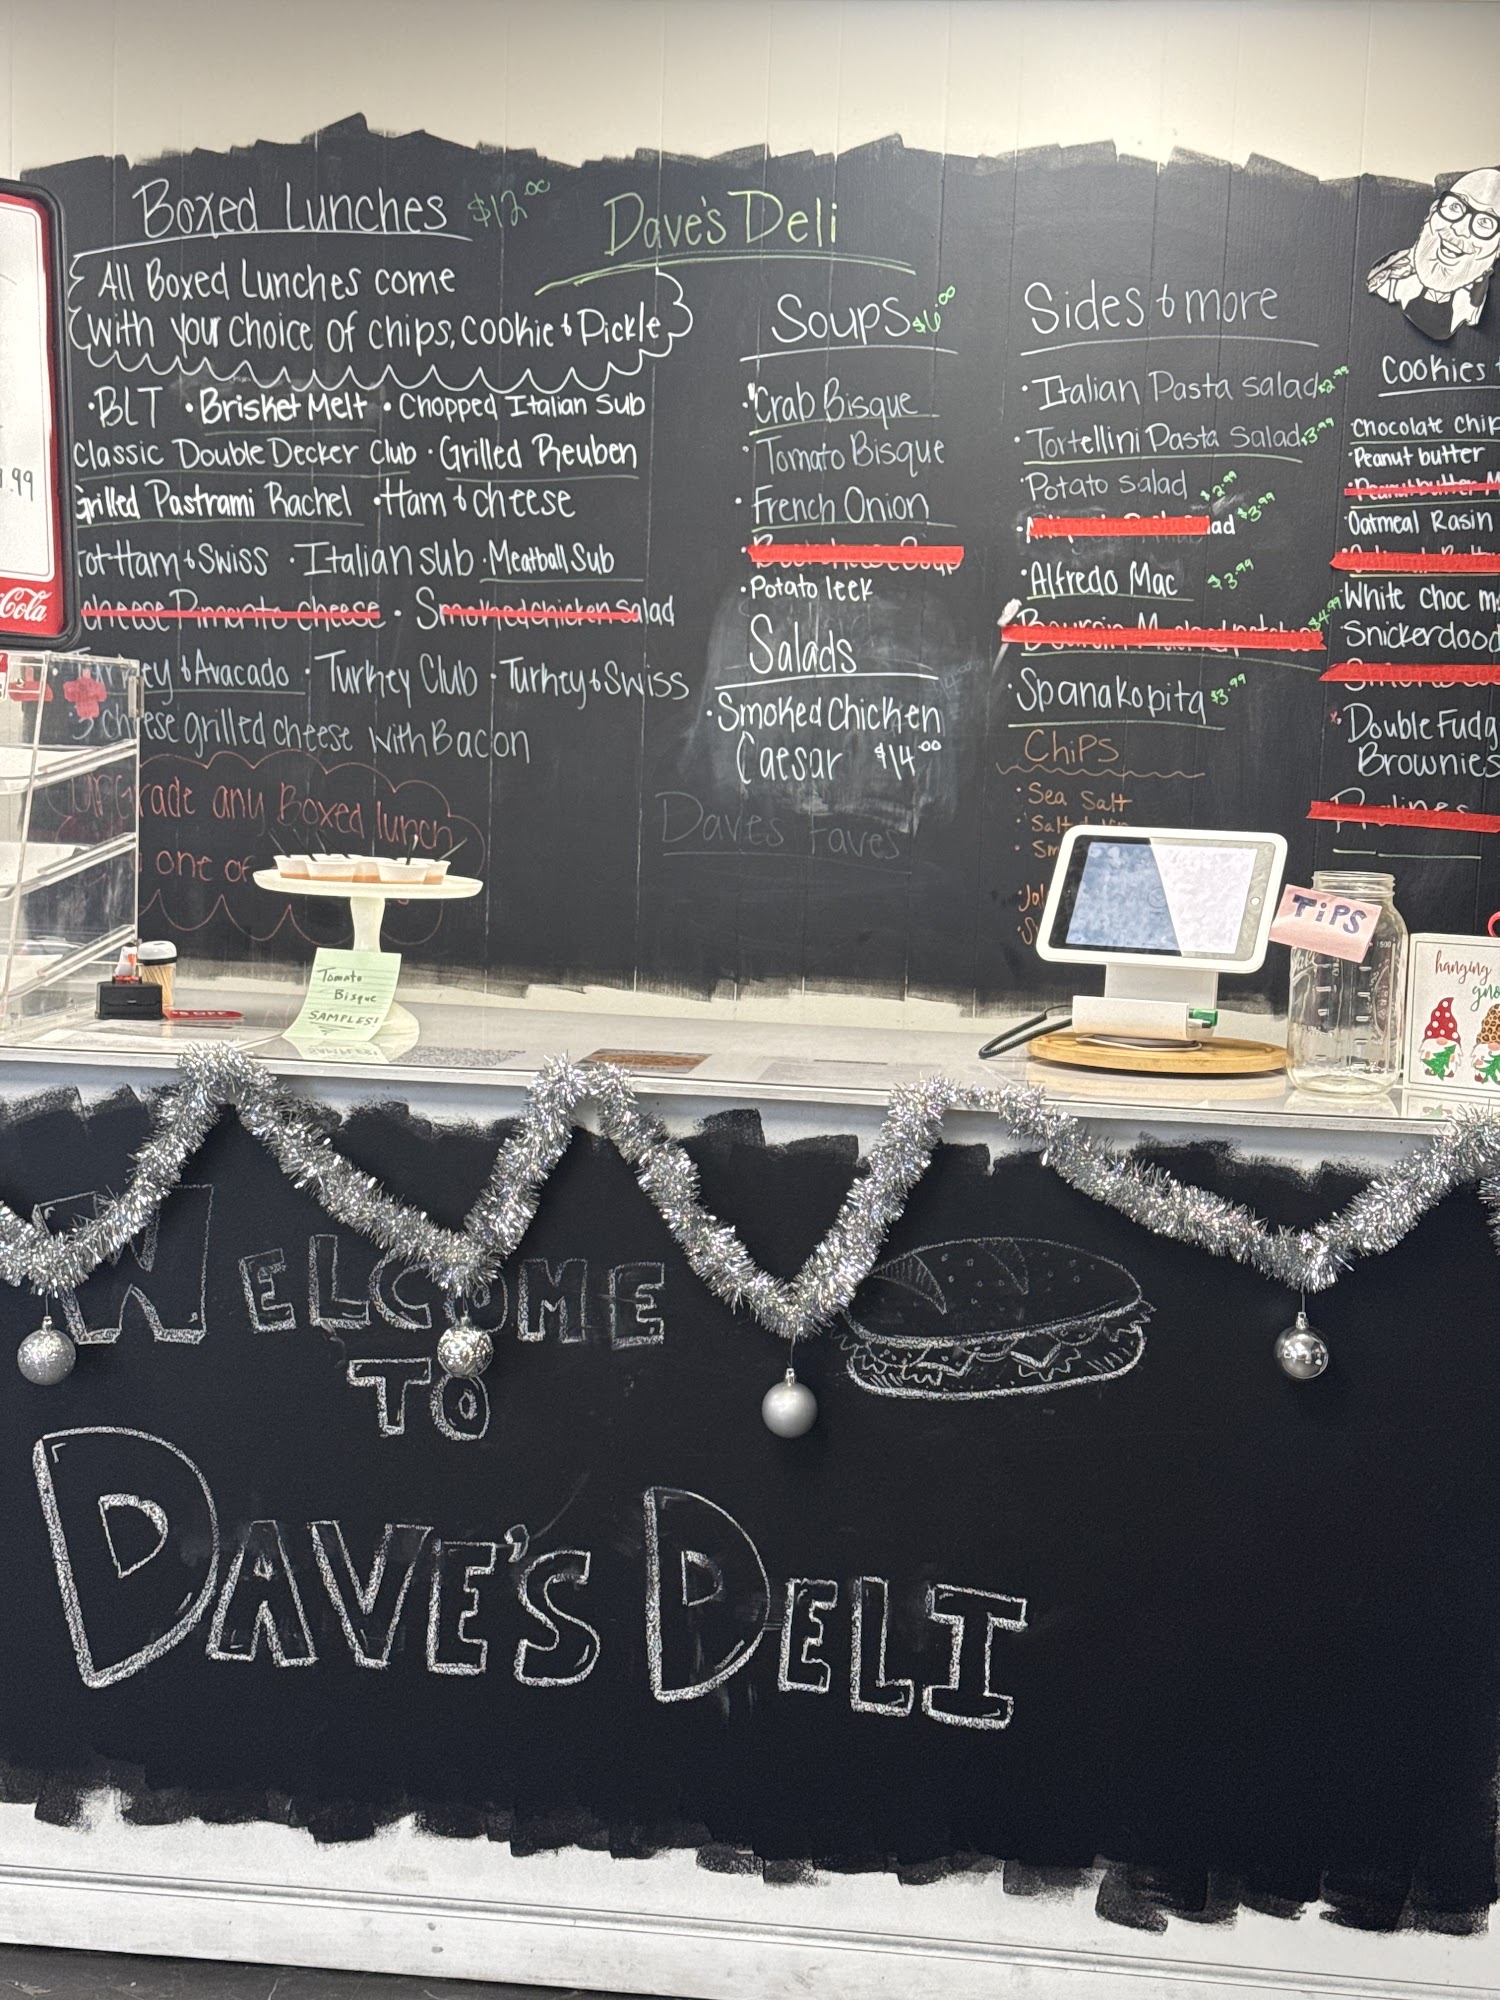 Boxed Lunches $12.00
All Boxed Lunches come
with your choice of chips, cookie & Pickle
• BLT • Brisket Melt • Chopped Italian Sub
Classic Double Decker Club • Grilled Reuben
Grilled Pastrami Rachel • Ham & cheese
Ham & Swiss • Italian sub • Meatball Sub
Cheese Pimento cheese • Smoked chicken salad
Turkey & Avacado • Turkey Club • Turkey & Swiss
3 cheese grilled cheese with Bacon
UPGrade any Boxed lunch
one of
Dave's Deli
Soups $6.00
• Crab Bisque
Tomato Bisque
• French Onion
• Potato leek
Salads
• Smoked Chicken
Caesar $14.00
Daves Faves
Sides & more
• Italian Pasta salad $2.99
• Tortellini Pasta Salad $3.99
Potato salad $2.99
$3.99
• Alfredo Mac $3.99
• Boursin Mashed potatoes $4.99
• Spanakopita $3.99
Chips
• Sea Salt
• Salt
Cookies
Chocolate chip
Peanut butter
Peanut butter
Oatmeal Rasin
White Choc
Snickerdood
Double Fudg
Brownies
Pralines
.99
Cola
Tomato
Bisque
SAMPLES!
TiPS
hanging
WELCOME
TO
DAVE'S DELI